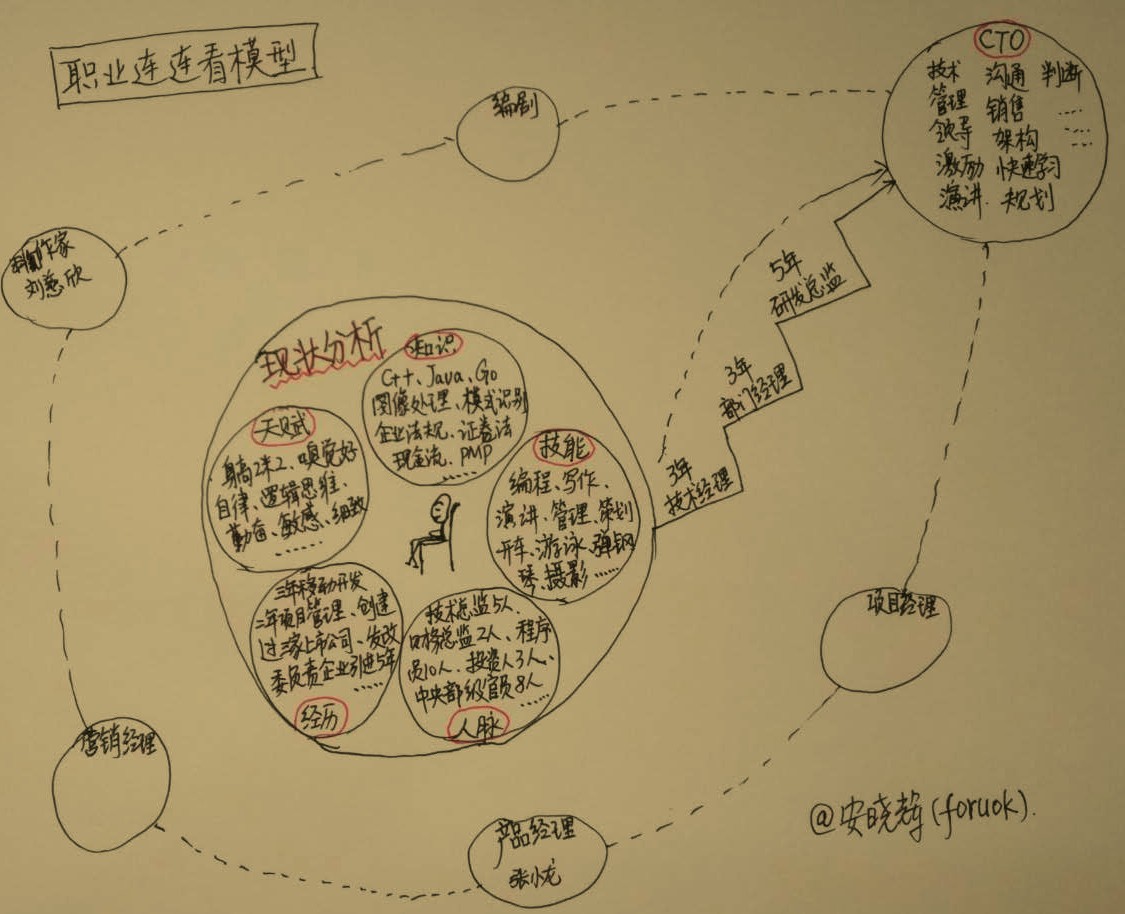 职业连连看模型
编剧
CTO
技术 沟通 判断
管理 销售 ……
领导 架构 ……
激励 快速学习
演讲 规划
科幻作家
刘慈欣
5年
研发总监
3年
部门经理
3年
技术经理
现状分析
知识
C++、Java、Go
图像处理、模式识别
企业法规、证券法
现金流、PMP
……
天赋
身高2米2、嗅觉好
自律、逻辑思维、
勤奋、敏感、细致
……
技能
编程、写作、
演讲、管理、策划
开车、游泳、弹钢
琴、摄影……
三年移动开发
二年项目管理、创建
过三家上市公司、发改
委负责企业引进5年
……
经历
技术总监5人、
总监2人、程序
员10人、投资人3人、
中央部级官员8人
……
人脉
项目经理
营销经理
产品经理
张小龙
@安晓辉(foruok).